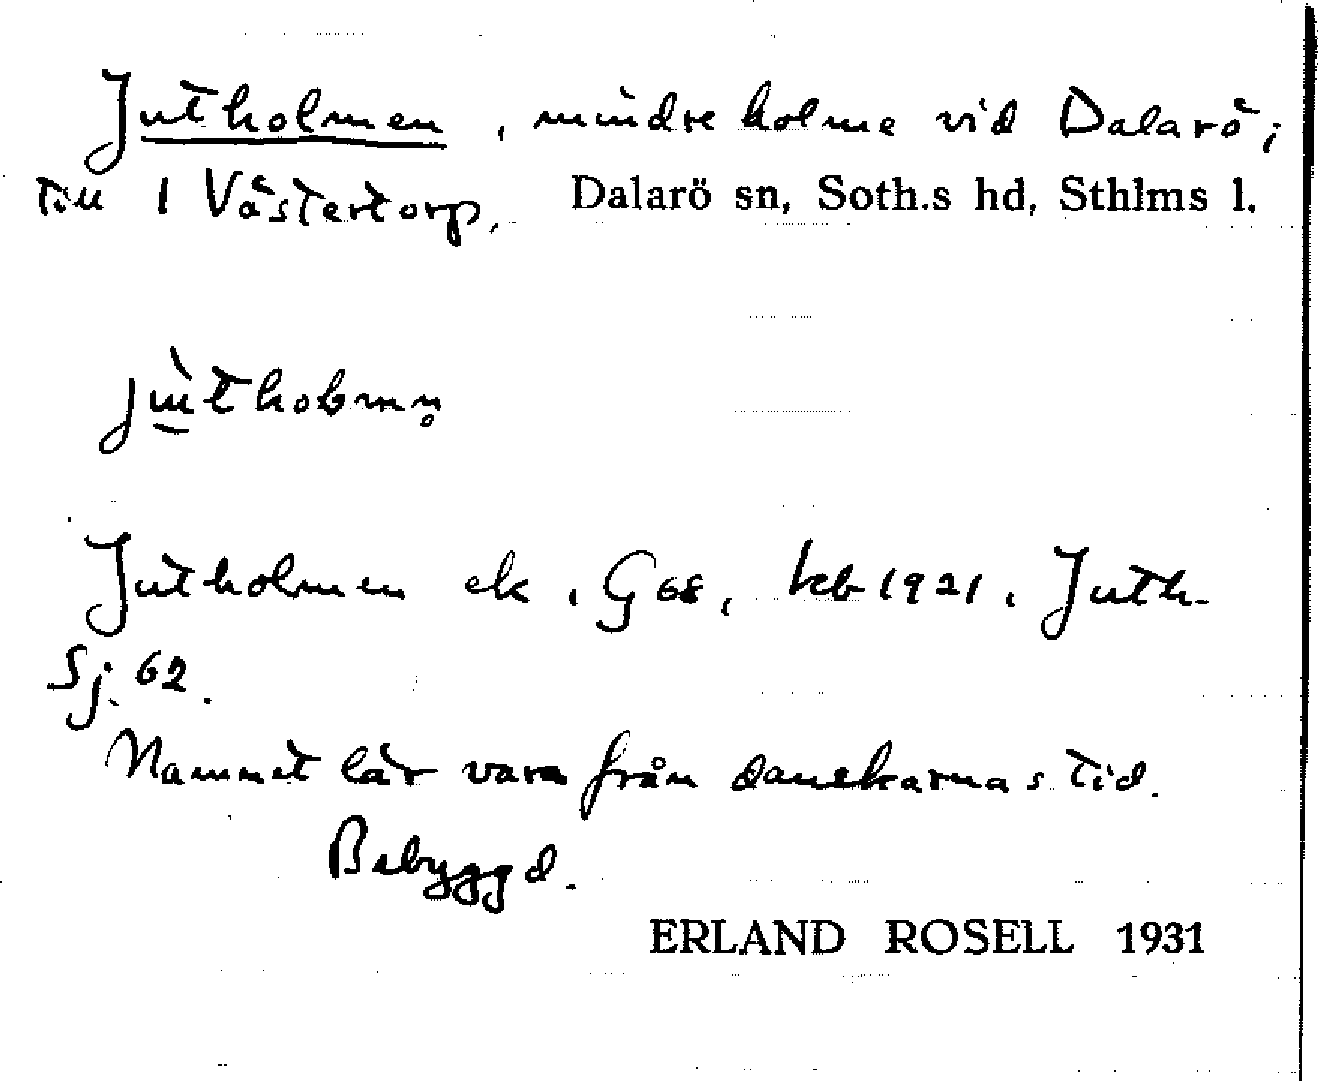 Jutholmen, mindre holme vid Dalarö;
till 1 Västertorp, Dalarö sn, Soth.s hd, Sthlms l.
Jutholmen ek, G 68, kb 1921, Juth-
Sj. 62.
Namnet lär vara från danskarnas tid.
Bebyggd.
ERLAND ROSELL 1931